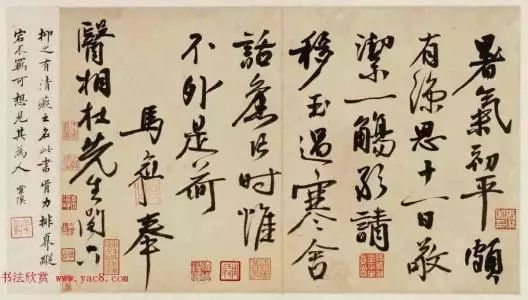 暑氣初平頗
有涼思十一日敬
潔一觴敢請
移玉過寒舍
話舊片時惟
不外是荷
馬愈奉
醫相杜先生閣下
抑之有清癡之名此書骨力排奡蹤
宕不羈可想見其為人 雲溪
书法欣赏
www.yac8.com